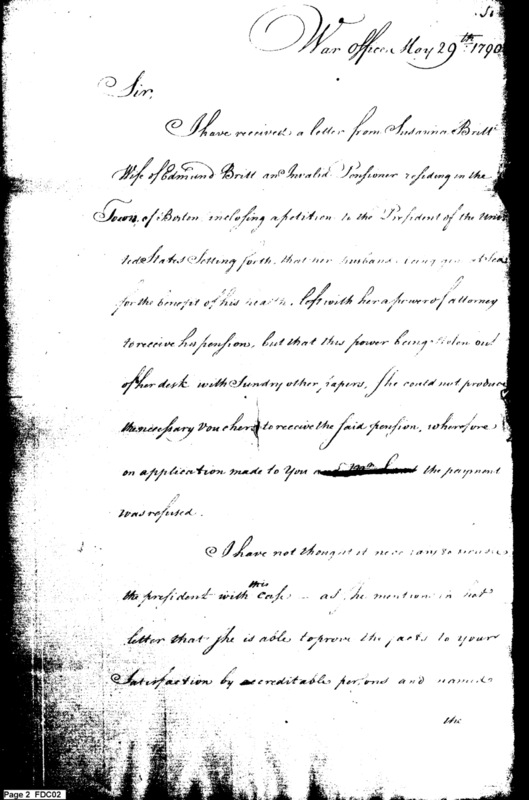 War office May 29th 1790
Sir,
I have received a letter from Susanna Britt
Wife of Edmund Britt an Invalid Pensioner residing in the
Town of Boston inclosing a petition to the President of the Uni
ted States Setting forth, that her husband being at sea
for the benefit of his health, left with her a power of attorney
to receive his pension, but that this power being stolen out
of her desk with Sundry other papers, She could not produce
the necessary vouchers to receive the said pension, wherefore
on application made to You the payment
was refused.
I have not thought it
the president with this case as she mentions in her
letter that she is able to prove the facts to your
Satisfaction by creditable persons and named
the
Page 2 FDC02